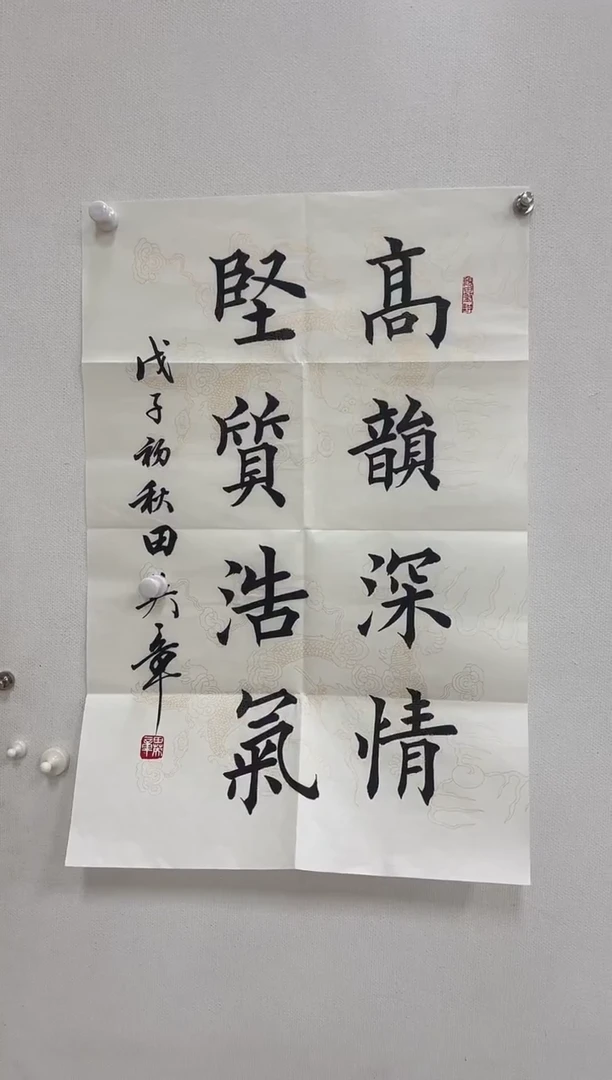 髙韻深情
堅質浩氣
戊子初秋田英章